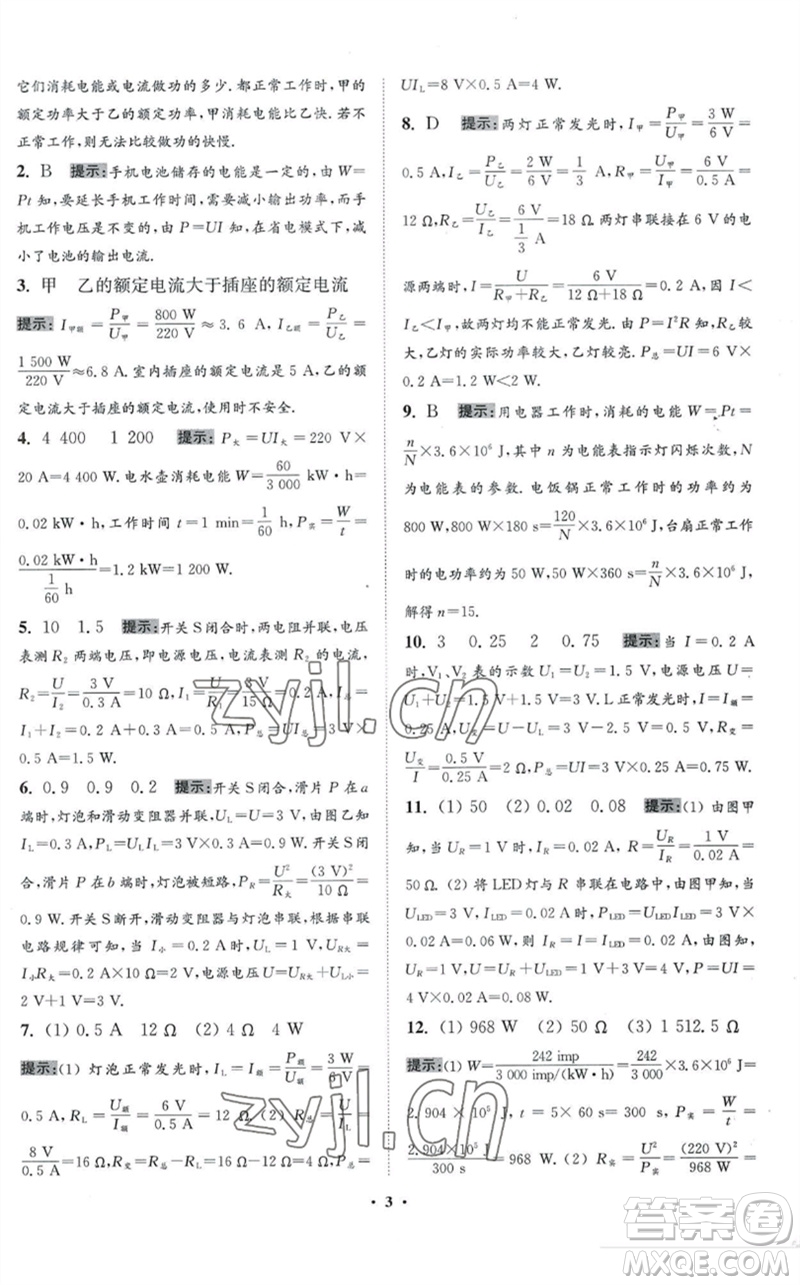 它们消耗电能或电流做功的多少. 都正常工作时,甲的
额定功率大于乙的额定功率,甲消耗电能比乙快. 若不
正常工作时,则无法比较做功的快慢.
2. B 提示:手机电池储存的电能是一定的,由 W=
Pt 知,要延长手机工作时间,需要减小输出功率,而手
机工作电压是不变的,由 P=UI 知,在省电模式下,
减小了电池的输出电流.
3. 甲 乙的额定电流大于插座的额定电流
提示: I甲额 = P甲/U甲 = 800 W/220 V ≈ 3. 6 A, I乙额 = P乙/U乙 =
1 500 W/220 V ≈6.8 A. 室内插座的额定电流是 5 A,乙的
额定电流大于插座的额定电流,使用时不安全.
4. 4 400 1 200 提示: P大 = UI大 = 220 V ×
20 A=4 400 W. 电水壶消耗电能 W = 60/3 000 kW·h =
0.02 kW·h,工作时间 t=1 min= 1/60 h, P实 = W/t =
0.02 kW·h/(1/60 h) =1.2 kW=1 200 W.
5. 10 1.5 提示:开关 S 闭合时,两电阻并联,电压
表测 R2 两端电压,即电源电压,电流表测干路电流,
R2 = U/I2 = 3 V/0.3 A =10 Ω, I1 = U/R1 = 3 V/15 Ω = 0.2 A, I =
I1+I2=0.2 A+0.3 A=0.5 A, P总 =UI=3 V×
0.5 A=1.5 W.
6. 0.9 0.9 0.2 提示:开关 S 闭合,滑片 P 在 a
端时,灯泡和滑动变阻器并联,UL=U=3 V,由图乙知
IL=0.3 A,PL=ULIL=3 V×0.3 A=0.9 W. 开关 S 闭
合,滑片 P 在 b 端时,灯泡被短路, PR = U²/R大 = (3 V)²/10 Ω =
0.9 W. 开关 S 断开,滑动变阻器与灯泡串联,根据串联
电路规律可知,当 I小=0.2 A 时,UL=1 V,UR大=
I小R大=0.2 A×10 Ω=2 V,电源电压 U=UR大+UL小=
2 V+1 V=3 V.
7. (1) 0.5 A 12 Ω (2) 4 Ω 4 W
提示:(1) 灯泡正常发光时, IL = I额 = P额/U额 = 3 W/6 V =
0.5 A, RL = U额/I额 = 6 V/0.5 A = 12 Ω. (2) R总 = U/I =
8 V/0.5 A =16 Ω, R变=R总−RL=16 Ω−12 Ω=4 Ω,P总=
UIL=8 V×0.5 A=4 W.
8. D 提示:两灯正常发光时, I甲 = P甲/U甲 = 3 W/6 V =
0.5 A, I乙 = P乙/U乙 = 2 W/6 V = 1/3 A, R甲 = U甲/I甲 = 6 V/0.5 A =
12 Ω, R乙 = U乙/I乙 = 6 V/(1/3 A) =18 Ω. 两灯串联接在 6 V 的电
源两端时, I = U/(R甲+R乙) = 6 V/(12 Ω+18 Ω) =0.2 A,因 I<
I乙<I甲,故两灯均不能正常发光. 由 P=I²R 知,相比
较,乙灯的实际功率较大,乙灯较亮. P总=UI=6 V×
0.2 A=1.2 W<2 W.
9. B 提示:用电器工作时,消耗的电能 W=Pt=
n/N ×3.6×10⁶ J,其中 n 为电能表指示灯闪烁次数,N
为电能表的参数. 电饭锅正常工作时的功率约为
800 W,800 W×180 s= 120/N ×3.6×10⁶ J,台扇正常工作
时的电功率约为 50 W,50 W×360 s= n/N ×3.6×10⁶ J,
解得 n=15.
10. 3 0.25 2 0.75 提示:当 I=0.2 A
时,V1、V2 表的示数 U1=U2=1.5 V,电源电压 U=
U1+UL=1.5 V+1.5 V=3 V. L 正常发光时,I=
0.25 A,U变=U−UL=3 V−2.5 V=0.5 V,R变=
U变/I = 0.5 V/0.25 A =2 Ω,P总=UI=3 V×0.25 A=0.75 W.
11. (1) 50 0.02 0.08 提示:(1) 由图甲
知,当 UR=1 V 时,IR=0.02 A,R= UR/IR = 1 V/0.02 A =
50 Ω. (2) 将 LED 灯与 R 串联在电路中,由图甲知,当
ULED=3 V,ILED=0.02 A 时,PLED=ULEDILED=3 V×
0.02 A=0.06 W,则 I=IR=ILED=0.02 A,UR=
1 V,U=UR+ULED=1 V+3 V=4 V,P=UI=
4 V×0.02 A=0.08 W.
12. (1) 968 W (2) 50 Ω (3) 1 512.5 Ω
提示:(1) W= 242 imp/3 000 imp/(kW·h) = 242/3 000 ×3.6×10⁶ J=
2.904 × 10⁵ J, t = 5×60 s= 300 s, P实 = W/t =
2.904×10⁵ J/300 s = 968 W. (2) R实 = U²/P实 = (220 V)²/968 W =
• 3 •
zyjl.cn
zyjl.cn
答案卷
MXQE.COM